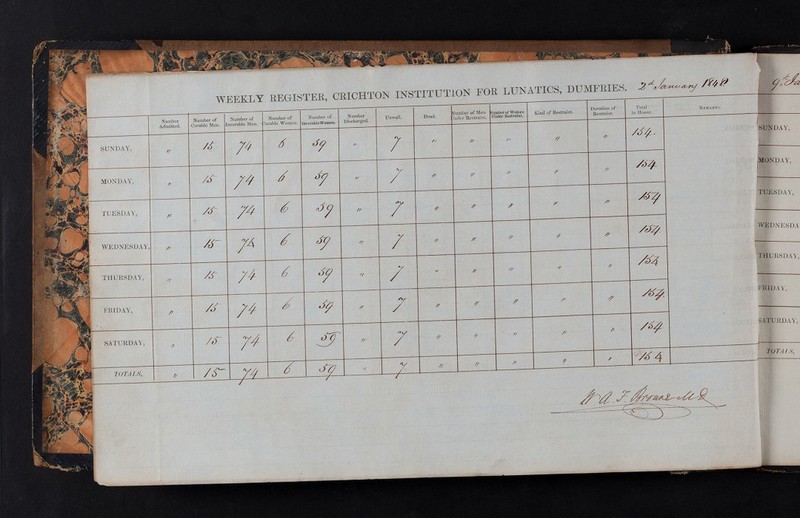 WEEKLY REGISTER, CRICHTON INSTITUTION FOR LUNATICS, DUMFRIES. 2d January 1848
Number Admitted. Number of Curable Men. Number of Incurable Men. Number of Curable Women. Number of Incurable Women. Number Discharged. Unwell. Dead. Number of Men Under Restraint. Number of Women Under Restraint. Kind of Restraint. Duration of Restraint. Total in House. REMARKS.
SUNDAY, " 15 74 6 59 " 7 " " " " " 154.
MONDAY, " 15 74 6 59 " 7 " " " " " 154
TUESDAY, " 15 74 6 59 " 7 " " " " " 154
WEDNESDAY, " 15 74 6 59 " 7 " " " " " 154
THURSDAY, " 15 74 6 59 " 7 " " " " " 154
FRIDAY, " 15 74 6 59 " 7 " " " " " 154
SATURDAY, " 15 74 6 59 " 7 " " " " " 154
TOTALS, " 15 74 6 59 " 7 " " " " " 154
W. A. F. Browne M.D.
9th Ja
SUNDAY,
MONDAY,
TUESDAY,
WEDNESDA
THURSDAY,
FRIDAY,
SATURDAY,
TOTALS,